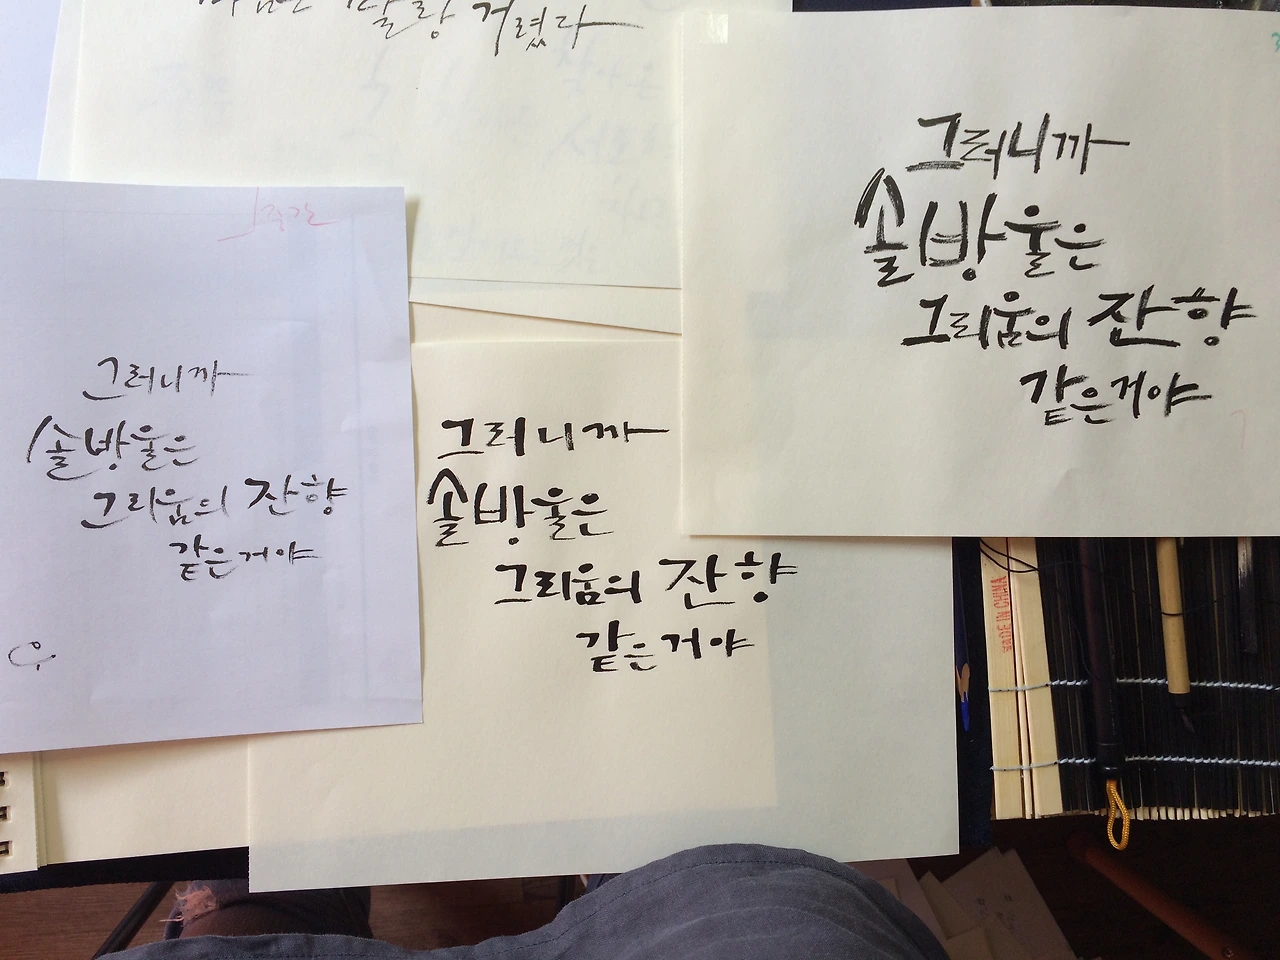 거렸다
그러니까
솔방울은
그리움의 잔향
같은거야
그러니까
솔방울은
그리움의 잔향
같은거야
그러니까
솔방울은
그리움의 잔향
같은거야
MADE IN CHINA